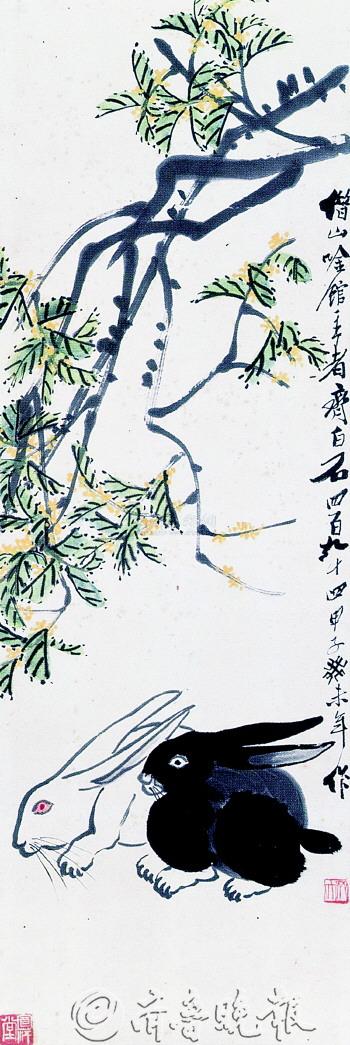 借山唫館主者齊白石四百九十四甲子癸未年作
齐鲁晚报